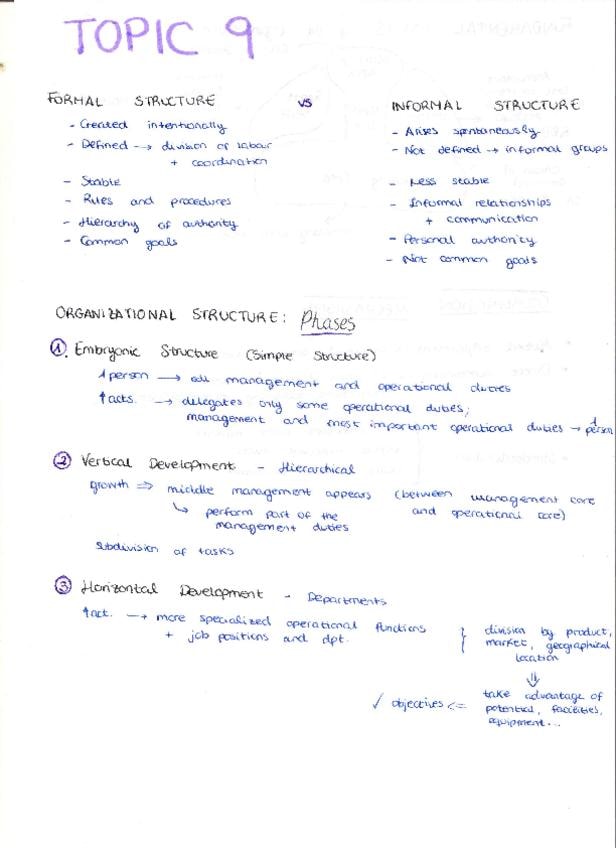 TOPIC 9
FORMAL STRUCTURE vs INFORMAL STRUCTURE
- Created intentionally
- Defined → division of labour
+ coordination
- Stable
- Rules and procedures
- Hierarchy of authority
- Common goals
- Arises spontaneously
- Not defined → informal groups
- Less stable
- Informal relationships
+ communication
- Personal authority
- Not common goals
ORGANIZATIONAL STRUCTURE: Phases
1. Embryonic Structure (Simple Structure)
1 person → all management and operational duties
↑ acts. → delegates only some operational duties;
management and most important operational duties → 1 person
2 Vertical Development - Hierarchical
growth ⇒ middle management appears (between management core
and operational core)
↳ perform part of the
management duties
Subdivision of tasks
3 Horizontal Development - Departments
↑ act. → more specialized operational functions
+ job positions and dpt.
} division by product,
market, geographical
location
⇓
take advantage of
potential, facilities,
equipment...
✓ objectives ⇐